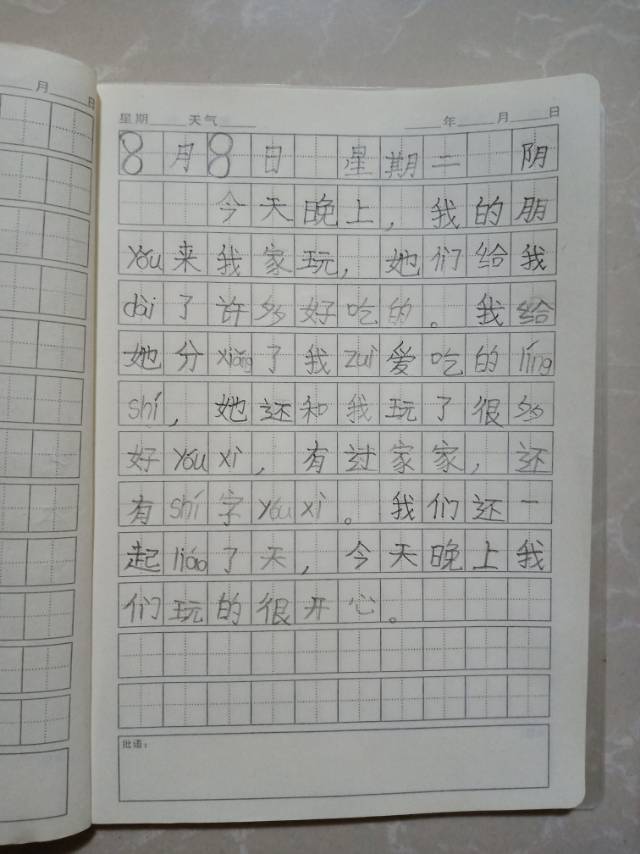 月 日
星期 天气 年 月 日
8月8日 星期二 阴
今天晚上，我的朋
yǒu来我家玩，她们给我
dài了许多好吃的。我给
她分xiǎng了我zuì爱吃的líng
shí，她还和我玩了很多
好yóu xì，有过家家，还
有shí字yóu xì。我们还一
起liáo了天，今天晚上我
们玩的很开心。
批语：